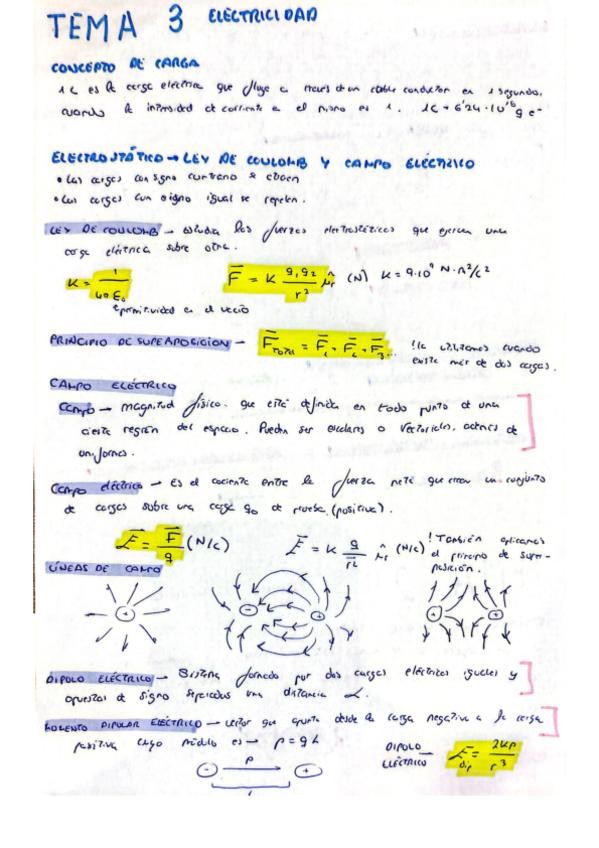 TEMA 3 ELECTRICIDAD
CONCEPTO DE CARGA
1C es la carga eléctrica que fluye a través de un cable conductor en 1 segundo,
cuando la intensidad de corriente en el mismo es 1. 1C = 6'24·10¹⁸ q e-
ELECTROSTÁTICO → LEY DE COULOMB Y CAMPO ELÉCTRICO
• Las cargas con signo contrario se atraen
• Las cargas con signo igual se repelen.
LEY DE COULOMB → estudia las fuerzas electrostáticas que ejercen una
carga eléctrica sobre otra.
K = 1/4πε₀ F = K q₁q₂/r² ûr (N) K = 9·10⁹ N·m²/C²
permitividad en el vacío
PRINCIPIO DE SUPERPOSICIÓN → F TOTAL = F₁ + F₂ + F₃... !la utilizamos cuando
existe más de dos cargas.
CAMPO ELÉCTRICO
Campo → magnitud física que está definida en todo punto de una
cierta región del espacio. Pueden ser escalares o vectoriales, además de
uniformes.
Campo eléctrico → Es el cociente entre la fuerza neta que crean un conjunto
de cargas sobre una carga q₀ de prueba. (positiva).
E = F/q (N/C) E = K q/r² ûr (N/C) ! También aplicamos
el principio de super-
posición.
LÍNEAS DE CAMPO
+ - + + +
DIPOLO ELÉCTRICO → Sistema formado por dos cargas eléctricas iguales y
opuestas de signo separadas una distancia L.
MOMENTO DIPOLAR ELÉCTRICO → vector que apunta desde la carga negativa a la carga
positiva cuyo módulo es → p = q L
DIPOLO
ELÉCTRICO → E dip = 2Kp/r³
- p +